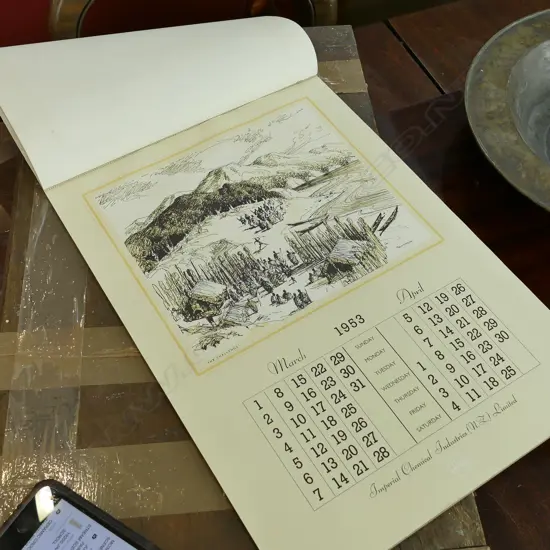 1953
March
April
1 8 15 22 29 SUNDAY 5 12 19 26
2 9 16 23 30 MONDAY 6 13 20 27
3 10 17 24 31 TUESDAY 7 14 21 28
4 11 18 25 WEDNESDAY 1 8 15 22 29
5 12 19 26 THURSDAY 2 9 16 23 30
6 13 20 27 FRIDAY 3 10 17 24
7 14 21 28 SATURDAY 4 11 18 25
Imperial Chemical Industries (N.Z.) Limited